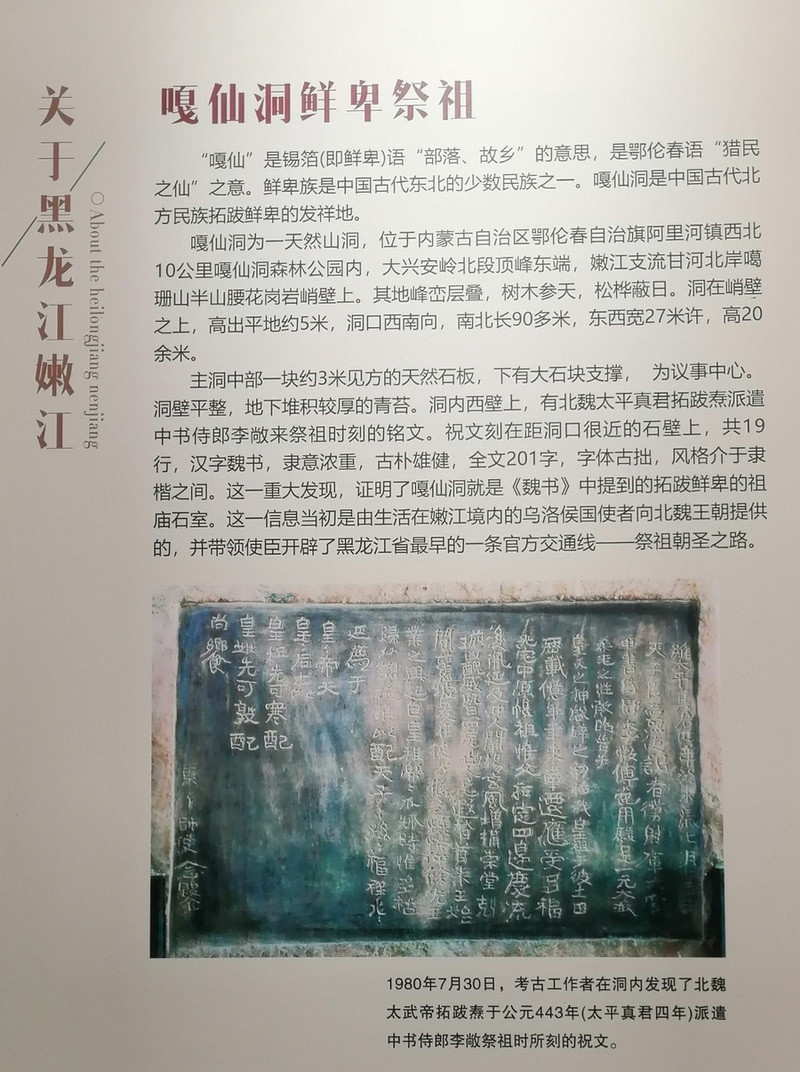 关于黑龙江嫩江
About the heilongjiang nenjiang
嘎仙洞鲜卑祭祖
“嘎仙”是锡箔(即鲜卑)语“部落、故乡”的意思，是鄂伦春语“猎民
之仙”之意。鲜卑族是中国古代东北的少数民族之一。嘎仙洞是中国古代北
方民族拓跋鲜卑的发祥地。
嘎仙洞为一天然山洞，位于内蒙古自治区鄂伦春自治旗阿里河镇西北
10公里嘎仙洞森林公园内，大兴安岭北段顶峰东端，嫩江支流甘河北岸噶
珊山半山腰花岗岩峭壁上。其地峰峦层叠，树木参天，松桦蔽日。洞在峭壁
之上，高出平地约5米，洞口西南向，南北长90多米，东西宽27米许，高20
余米。
主洞中部一块约3米见方的天然石板，下有大石块支撑， 为议事中心。
洞壁平整，地下堆积较厚的青苔。洞内西壁上，有北魏太平真君拓跋焘派遣
中书侍郎李敞来祭祖时刻的铭文。祝文刻在距洞口很近的石壁上，共19
行，汉字魏书，隶意浓重，古朴雄健，全文201字，字体古拙，风格介于隶
楷之间。这一重大发现，证明了嘎仙洞就是《魏书》中提到的拓跋鲜卑的祖
庙石室。这一信息当初是由生活在嫩江境内的乌洛侯国使者向北魏王朝提供
的，并带领使臣开辟了黑龙江省最早的一条官方交通线——祭祖朝圣之路。
延薦于
皇皇帝天
皇皇后土
皇祖先可寒配
皇妣先可敦配
尚饗
1980年7月30日，考古工作者在洞内发现了北魏
太武帝拓跋焘于公元443年(太平真君四年)派遣
中书侍郎李敞祭祖时所刻的祝文。